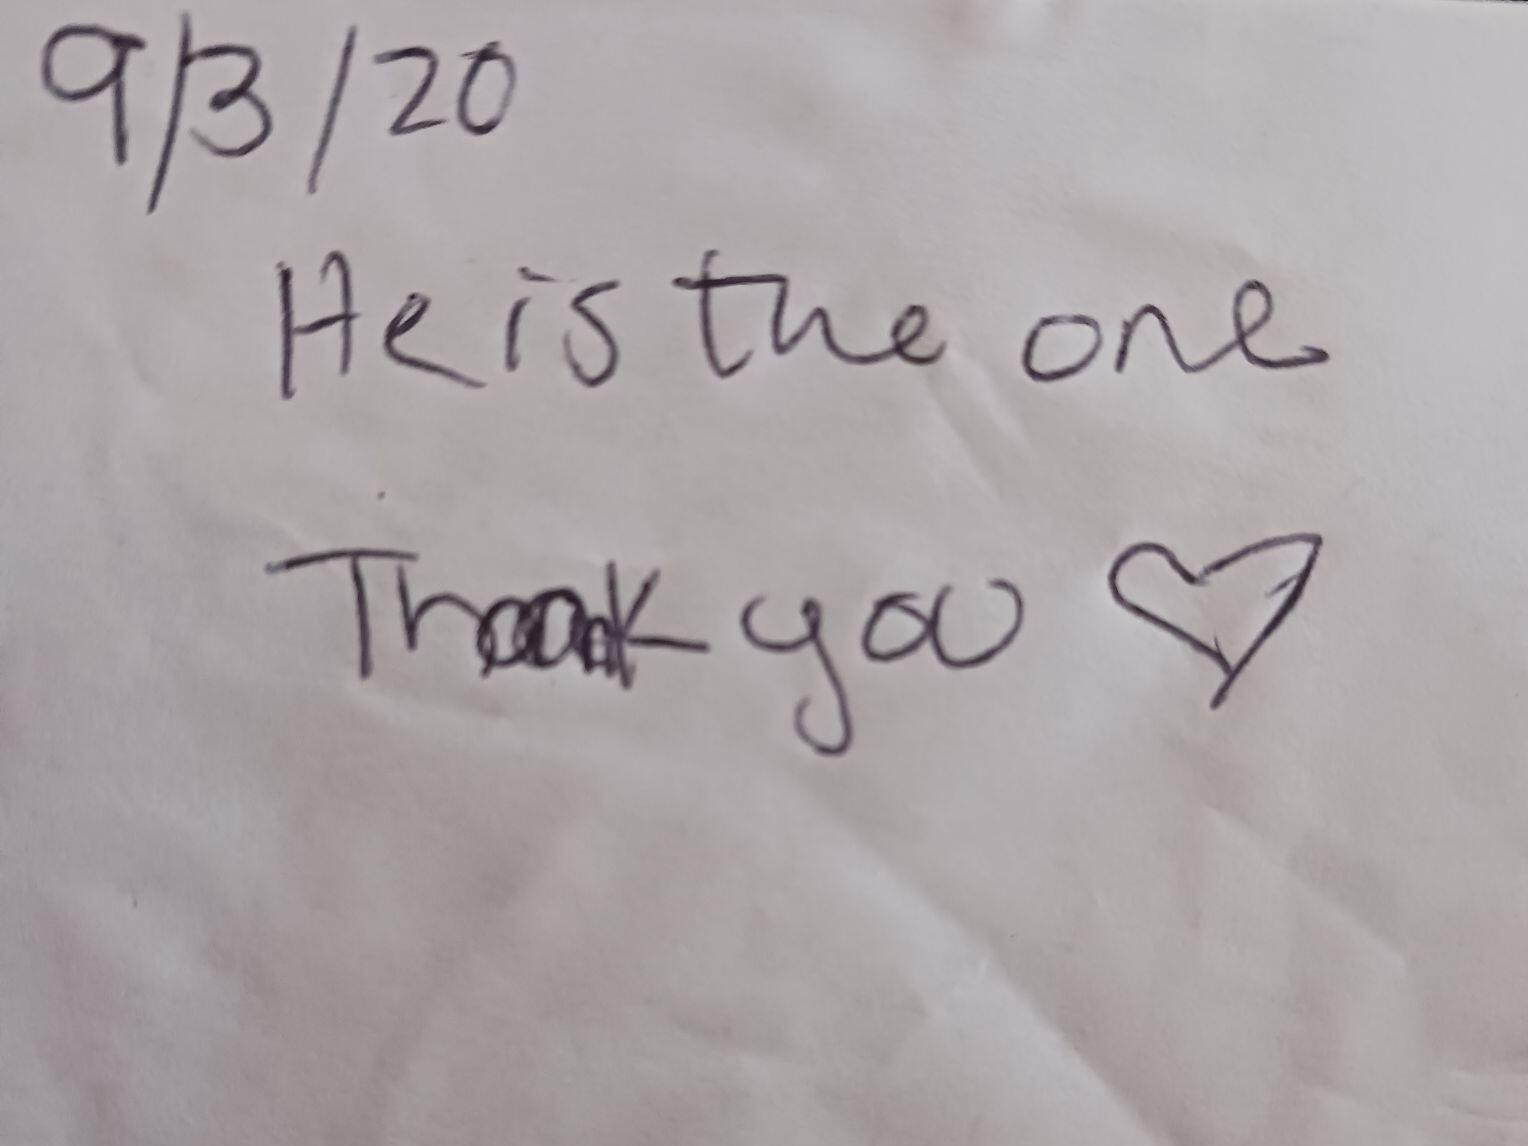 9/3/20
He is the one
Thank you ♡